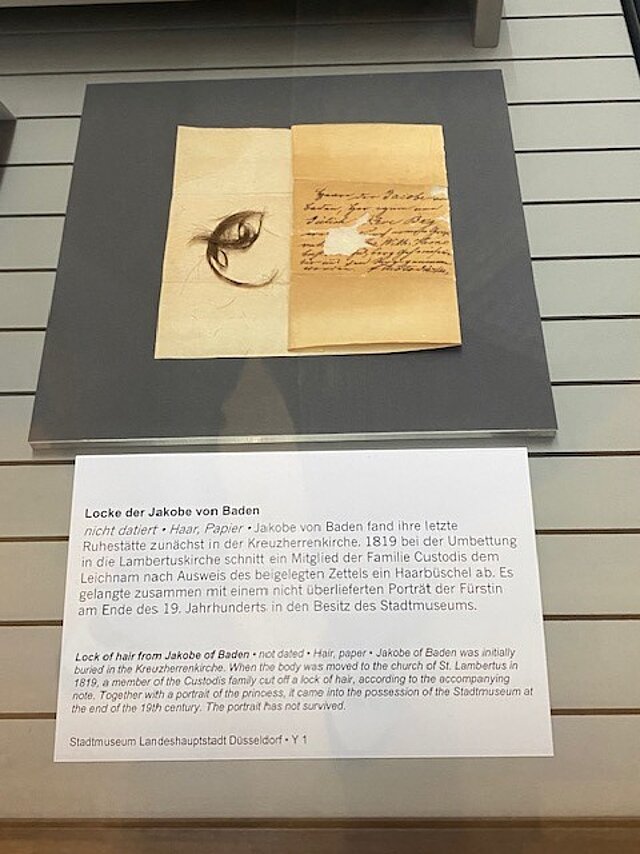 Haare der Jacobe
Baden,
Jülich
Locke der Jakobe von Baden
nicht datiert • Haar, Papier • Jakobe von Baden fand ihre letzte
Ruhestätte zunächst in der Kreuzherrenkirche. 1819 bei der Umbettung
in die Lambertuskirche schnitt ein Mitglied der Familie Custodis dem
Leichnam nach Ausweis des beigelegten Zettels ein Haarbüschel ab. Es
gelangte zusammen mit einem nicht überlieferten Porträt der Fürstin
am Ende des 19. Jahrhunderts in den Besitz des Stadtmuseums.
Lock of hair from Jakobe of Baden • not dated • Hair, paper • Jakobe of Baden was initially
buried in the Kreuzherrenkirche. When the body was moved to the church of St. Lambertus in
1819, a member of the Custodis family cut off a lock of hair, according to the accompanying
note. Together with a portrait of the princess, it came into the possession of the Stadtmuseum at
the end of the 19th century. The portrait has not survived.
Stadtmuseum Landeshauptstadt Düsseldorf • Y 1